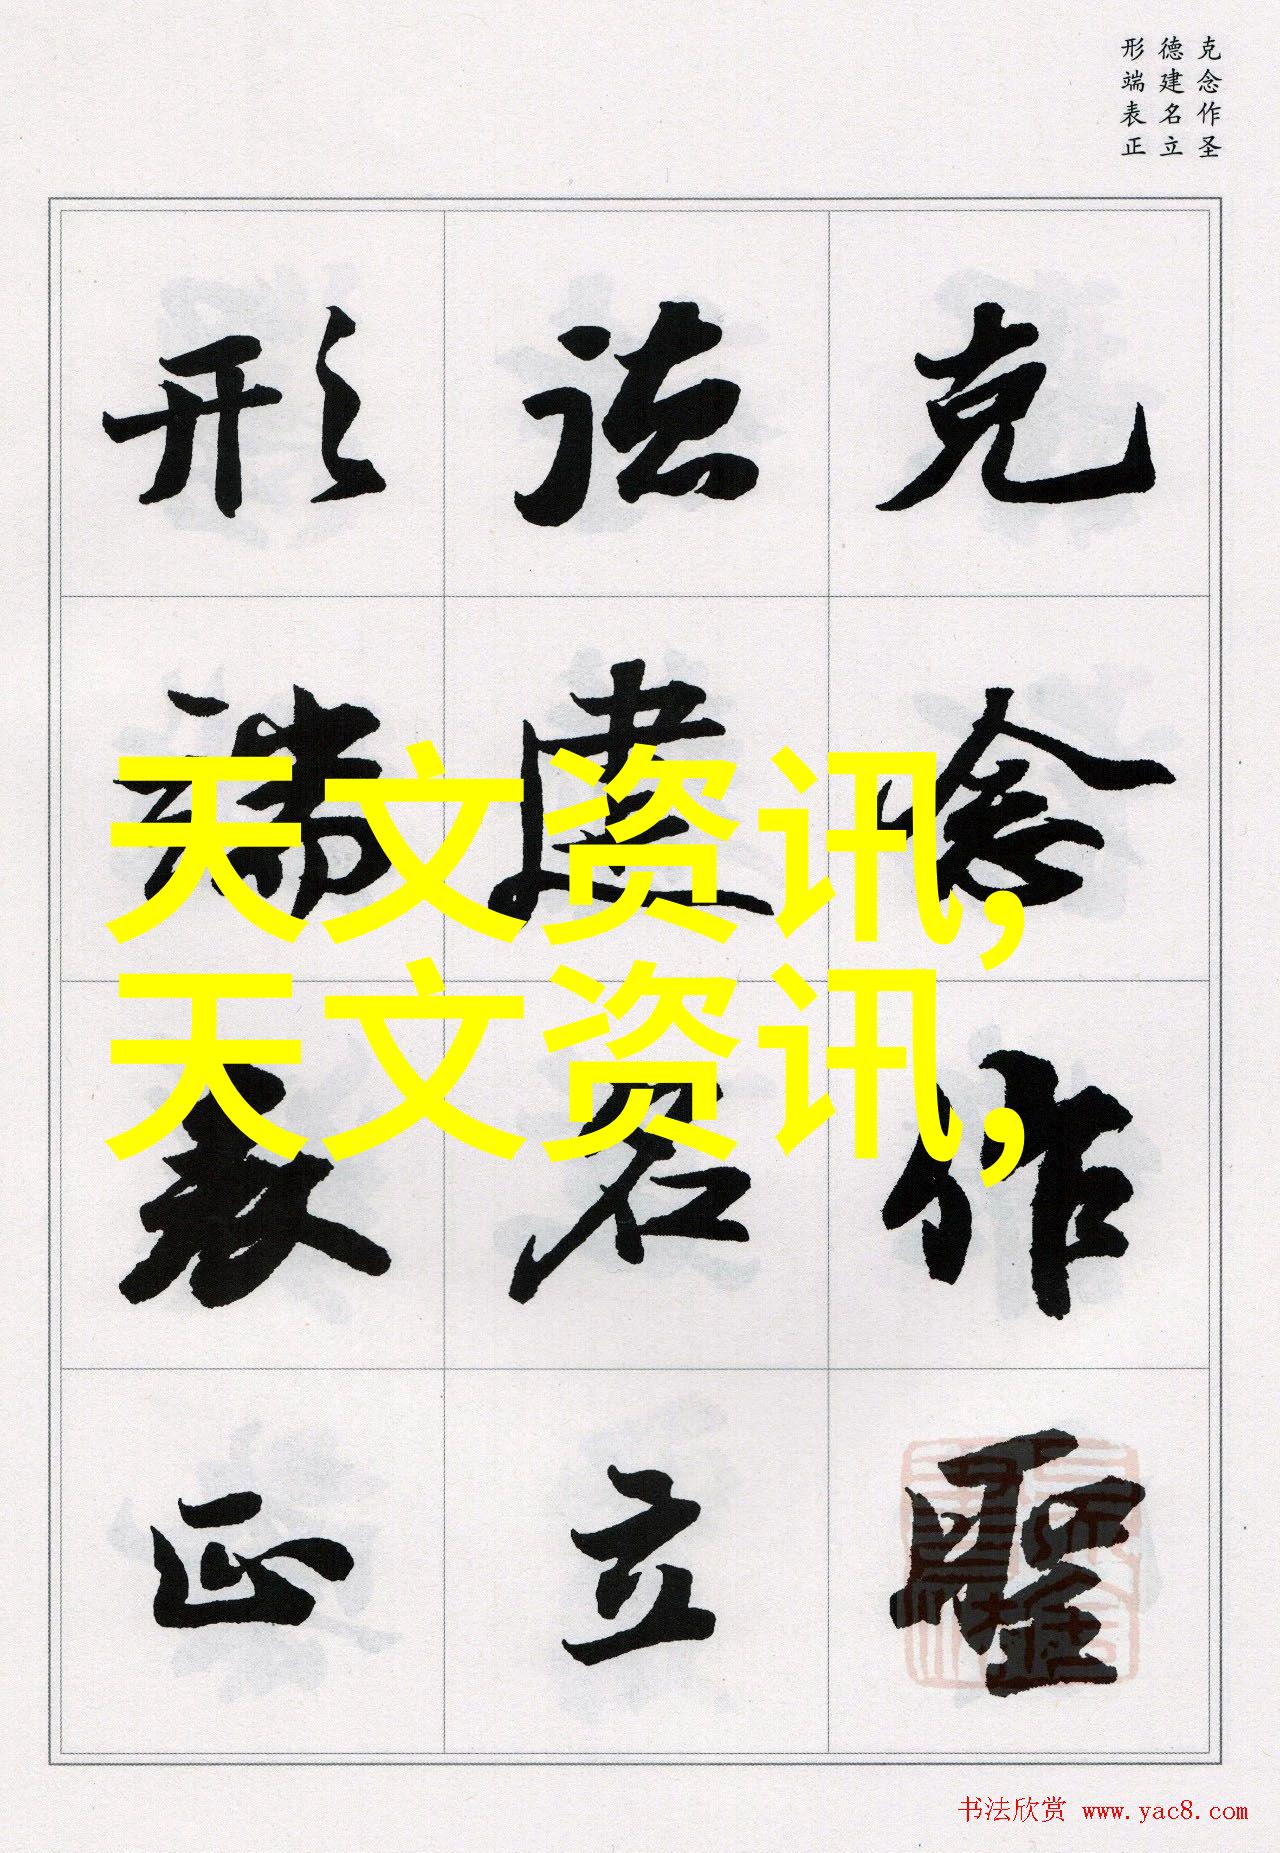 克念作圣
德建名立
形端表正
克念作聖
德建名立
形端表正
天文资讯,
天文资讯,
书法欣赏 www.yac8.com